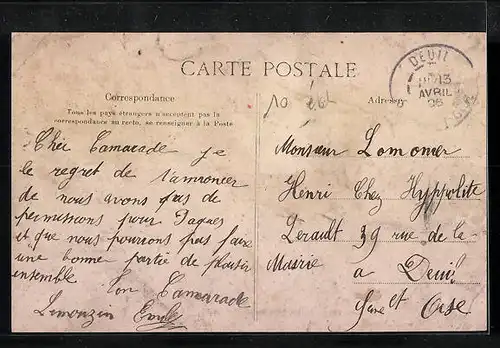 CARTE POSTALE
Correspondance
Tous les pays étrangers n'acceptent pas la
correspondance au recto, se renseigner à la Poste
Cher Camarade je
te regret de t'annoncer
de nous avons pas de
permissions pour Paques
et que nous pourrons pas faire
une bonne partie de plaisir
ensemble Ton Camarade
Limouzin Emile
10
Adresse
DEUIL
13
AVRIL
06
Monsieur Lomonier
Henri Chez Hyppolite
39 rue de la
Mairie
a Deuil
Seine et Oise